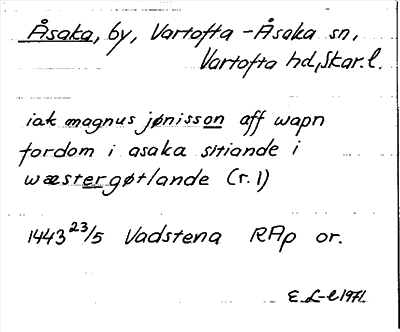 Åsaka, by, Vartofta-Åsaka sn,
Vartofta hd, Skar. l.
iak magnus jønisson aff wapn
fordom i asaka sitiande i
wæstergøtlande (r. 1)
1443 23/5 Vadstena RAp or.
E. L-l 1971.